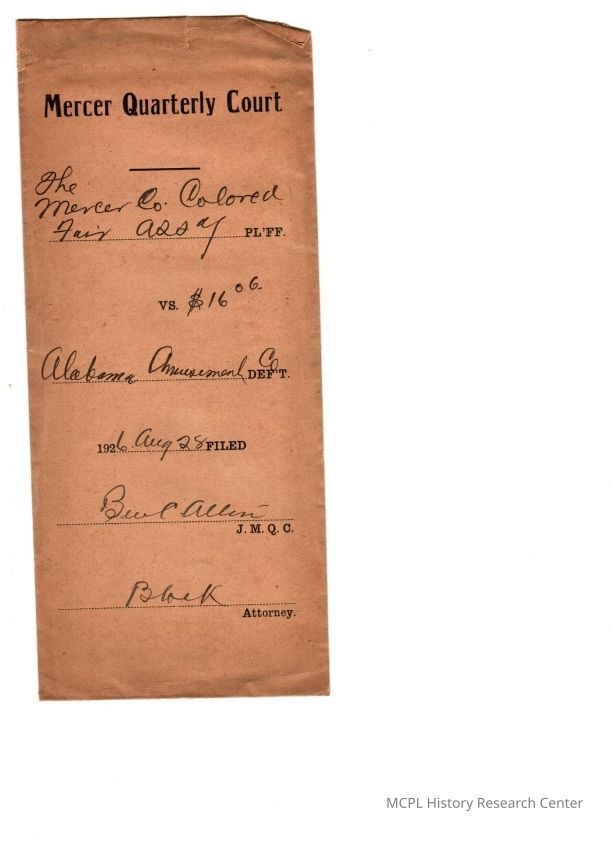 Mercer Quarterly Court
The
Mercer Co. Colored
Fair Ass'y PL'FF.
VS. $16 06
Alabama Amusement Co DEF'T.
1926 Aug 28 FILED
Ben C Allin
J. M. Q. C.
Black
Attorney.
MCPL History Research Center